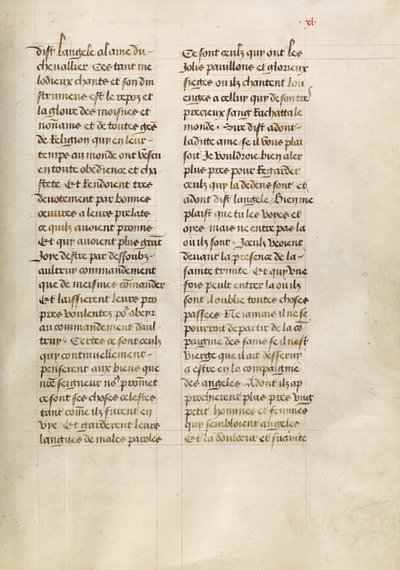 xl.
dist langele a lame du
chevallier Ces tant me
lodieux chants et son din
strumens est le repoz et
la gloire des moisnes et
noñains et de toutes gẽs
de Religion qui en leur
temps au monde ont vescu
en toute obedience et cha
stete Et rendoient tres
devotement par bonnes
œuvres a leurs prelats
ce quilz avoient promis
Et qui avoient plus grãt
Joye destre par dessoubz
aultruy commandement
que de meismes cõmander
Et laissierent leurs pro
pres voulentez põ obeyr
au commandement daul
truy . Certes ce sont ceulz
qui continuellement
penserent aux biens que
nrẽ seigneur no9 promet
ce sont ses choses celestes
tant cõme ilz furent en
vye Et garderent leurs
langues de males paroles
Ce sont ceulz qui ont les
Jolis pavillons et glorieux
sieges ou ilz chantent lou
enges a celluy qui de son tres
precieux sang Rachatta le
monde . Sire dist adont
la ditte ame se il vous plai
soit Je vouldroie bien aler
plus pres pour Regarder
ceulz qui la dedens sont et
adont dist langele Bien me
plaist que tu les voyes et
oyes mais ne entre pas la
ou ilz sont . Iceulz veoient
devant la presence de la
sainte trinite Et qui une
fois peult entrer la ou ilz
sont il oublie toutes choses
passees Ne iamais il ne se
pourroit departir de la cõ
paignie des sains se il nest
vierge que il ait desservy
a estre en la compaignie
des angeles . Adont ilz ap
procherent plus pres ung
petit hommes et femmes
qui sembloient angeles
Et la doulceur et suavite